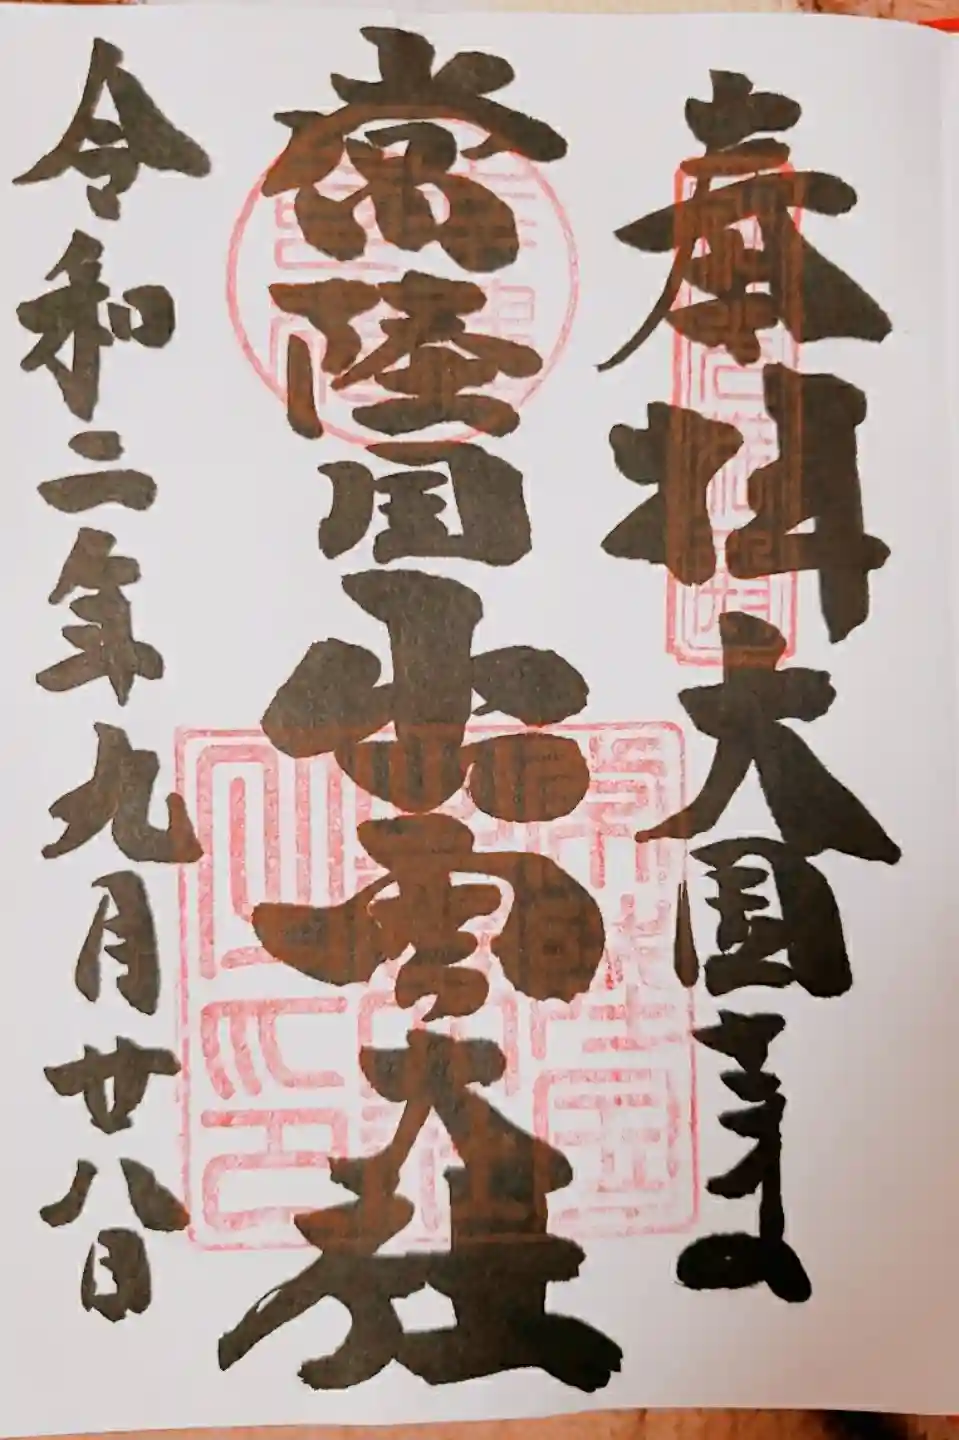 奉拝 大国さま
常陸国出雲大社
令和二年九月廿八日